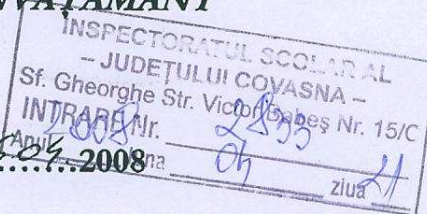 INSPECTORATUL ȘCOLAR AL
– JUDEȚULUI COVASNA –
Sf. Gheorghe Str. Victor Babeș Nr. 15/C
INTRARE Nr. 2833
Anul 2008 Luna 04 ziua 21
.2008